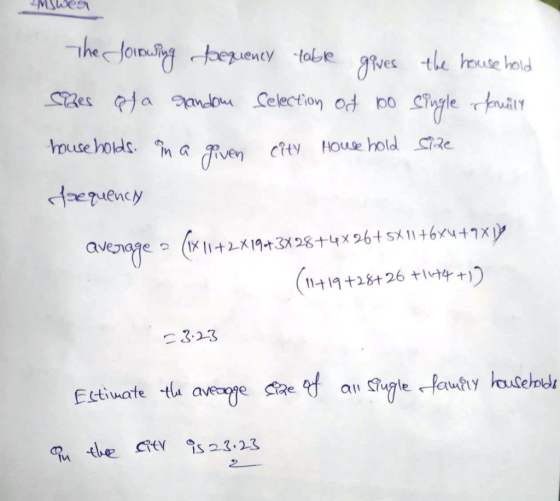 Answer
The following frequency table gives the household
sizes of a random selection of 100 single family
households. in a given city House hold size
frequency
average = (1×11+2×19+3×28+4×26+5×11+6×4+7×1)/
(11+19+28+26+11+4+1)
= 3.23
Estimate the average size of all single family households
in the city is = 3.23